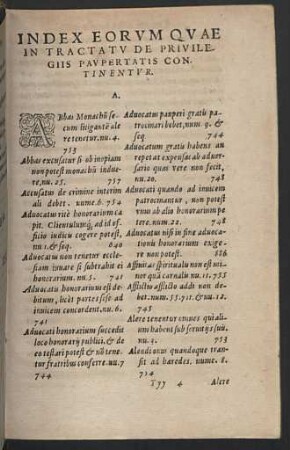 INDEX EORVM QVAE
IN TRACTATV DE PRIVILE-
GIIS PAVPERTATIS CON-
TINENTVR.
A.
ABbas Monachũ se-
cum litigantẽ ale
re tenetur. nu. 4.
713
Abbas excusatur si ob inopiam
non potest monachũ indue-
re, nu. 25. 717
Accusatus de crimine interim
ali debet. nume. 6. 754
Aduocatus ritè honorarium ca
pit.
officio iudicis cogere potest,
nu. 1. & seq. 640
Aduocatus non tenetur eccle-
siam iuuare si subtrahit ei
honorarium. nu. 5. 741
Aduocatu honorarium est de
bitum, licèt partes ipse ad
inuicem concordent. nu. 6.
741
Aduocati honorarium succedit
loco honorarij publici, & de
eo testari potest & nõ tene-
tur fratribus conferre. nu. 7
744
Aduocatus pauperi gratis pa-
trocinari debet, num. 9. &
seq. 744
Aduocatum gratis habens an
repetat expensas ab aduer-
sario quas verè non fecit,
nu. 20. 748
Aduocati quando ad inuicem
patrocinantur, non potest
vnus ab alio honorarium pe
tere. num. 22. 748
Aduocatus nisi in fine aduoca-
tionis honorarium exige-
re non potest. 886
Affinitas spiritualis non est mi-
nor quã carnalis nu. 11. 755
Afflictus afflictio addi non de-
bet. num. 55. 711. & nu. 12.
745
Alere tenentur omnes qui ali-
um habent sub seruitijs suis.
nu. 4. 753
Alendi onus quandoque tran-
sit ad haeredes. nume. 8.
714
Yyy 4 Alere